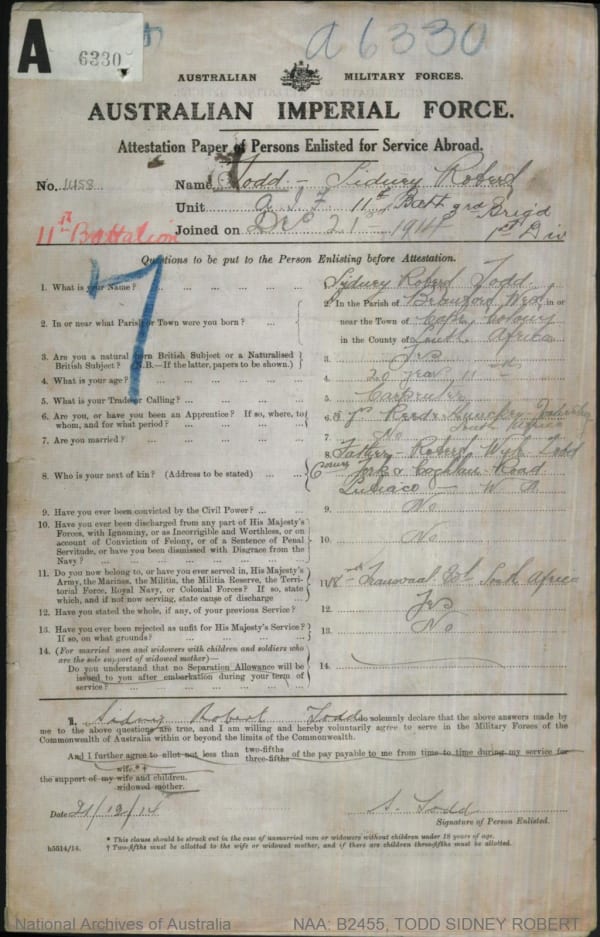 A 6330
a 6330
AUSTRALIAN MILITARY FORCES.
AUSTRALIAN IMPERIAL FORCE.
Attestation Paper of Persons Enlisted for Service Abroad.
No. 1458 Name Todd - Sidney Robert
Unit A.I.F. 11th Batt 3rd Brigd
11st Battalion Joined on Dec 21 - 1914 1st Div
7
Questions to be put to the Person Enlisting before Attestation.
1. What is your Name? ... 1. Sidney Robert Todd
2. In or near what Parish or Town were you born? ... 2. In the Parish of Beauford West in or
near the Town of Cape Colony
in the County of South Africa
3. Are you a natural born British Subject or a Naturalised
British Subject? (N.B.—If the latter, papers to be shown.) 3. Yes
4. What is your age? ... 4. 20 years 11 mths
5. What is your Trade or Calling? ... 5. Carpenter
6. Are you, or have you been an Apprentice? If so, where, to
whom, and for what period? ... 6.
South Africa
7. Are you married? ... 7. No
8. Who is your next of kin? (Address to be stated) ... 8. Father - Robert Todd
Corner York & Road
Subiaco - W A
9. Have you ever been convicted by the Civil Power? ... 9. No
10. Have you ever been discharged from any part of His Majesty's
Forces, with Ignominy, or as Incorrigible and Worthless, or on
account of Conviction of Felony, or of a Sentence of Penal
Servitude, or have you been dismissed with Disgrace from the
Navy? ... 10. No
11. Do you now belong to, or have you ever served in, His Majesty's
Army, the Marines, the Militia, the Militia Reserve, the Terri-
torial Force, Royal Navy, or Colonial Forces? If so, state
which, and if not now serving, state cause of discharge 11. Transvaal South Africa
12. Have you stated the whole, if any, of your previous Service? 12. Yes
13. Have you ever been rejected as unfit for His Majesty's Service?
If so, on what grounds? ... 13. No
14. (For married men and widowers with children and soldiers who
are the sole support of widowed mother)—
Do you understand that no Separation Allowance will be
issued to you after embarkation during your term of
service? ... 14.
I, Sidney Robert Todd do solemnly declare that the above answers made by
me to the above questions are true, and I am willing and hereby voluntarily agree to serve in the Military Forces of the
Commonwealth of Australia within or beyond the limits of the Commonwealth.
And I further agree to allot not less than two-fifths three-fifths of the pay payable to me from time to time during my service for
the support of my wife.*† wife and children. widowed mother.
Date 21/12/14 S. Todd
Signature of Person Enlisted.
* This clause should be struck out in the case of unmarried men or widowers without children under 18 years of age.
h5514/14. † Two-fifths must be allotted to the wife or widowed mother, and if there are children three-fifths must be allotted.
National Archives of Australia NAA: B2455, TODD SIDNEY ROBERT